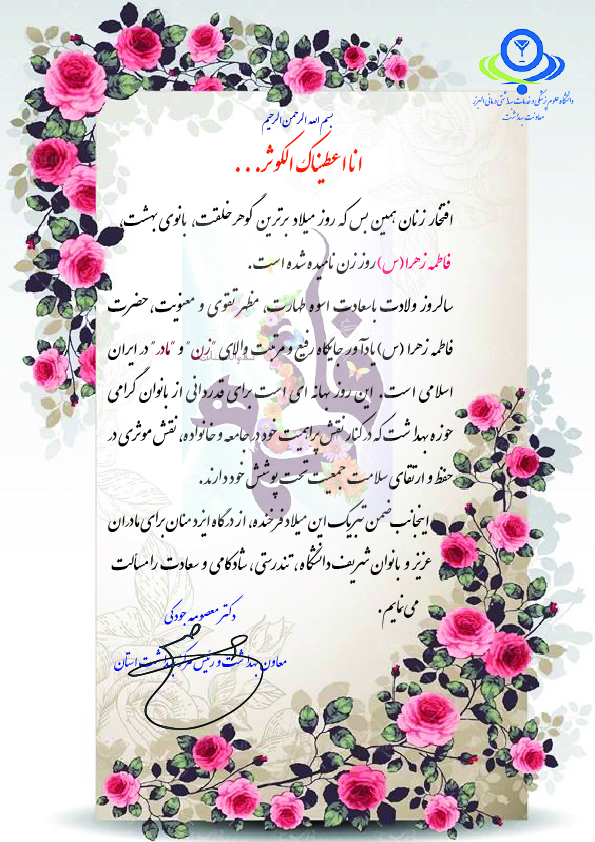 دانشگاه علوم پزشکی و خدمات بهداشتی درمانی البرز
معاونت بهداشت
بسم الله الرحمن الرحیم
انا اعطیناک الکوثر...
افتخار زنان همین بس که روز میلاد برترین گوهر خلقت، بانوی بهشت،
فاطمه زهرا (س) روز زن نامیده شده است.
سالروز ولادت باسعادت اسوه طهارت، مظهر تقوی و معنویت، حضرت
فاطمه زهرا (س) یادآور جایگاه رفیع و مرتبت والای "زن" و "مادر" در ایران
اسلامی است. این روز بهانه ای است برای قدردانی از بانوان گرامی
حوزه بهداشت که در کنار نقش پراهمیت خود در جامعه و خانواده، نقش موثری در
حفظ و ارتقای سلامت جمعیت تحت پوشش خود دارند.
اینجانب ضمن تبریک این میلاد فرخنده، از درگاه ایزد منان برای مادران
عزیز و بانوان شریف دانشگاه، تندرستی، شادکامی و سعادت را مسألت
می نمایم.
دکتر معصومه جودکی
معاون بهداشت و رئیس مرکز بهداشت استان